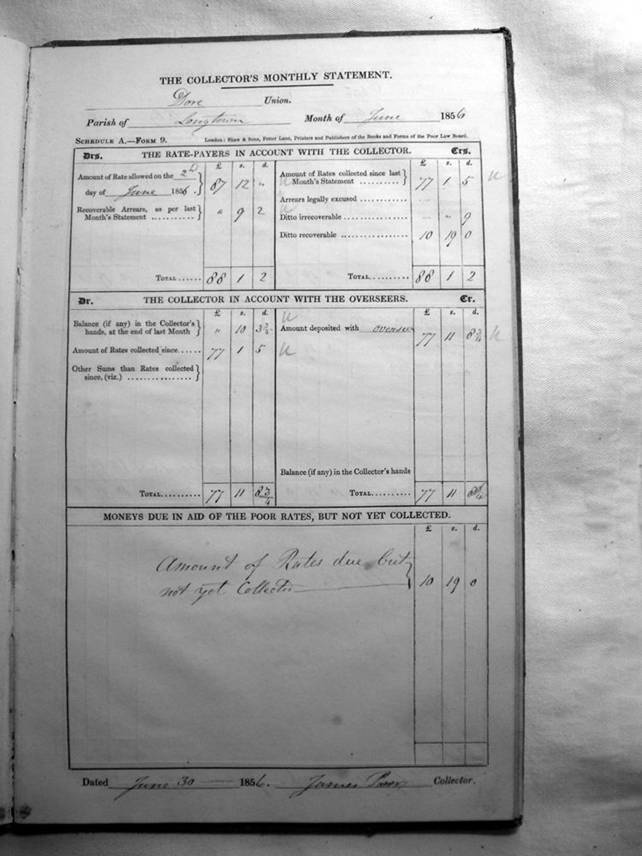 THE COLLECTOR'S MONTHLY STATEMENT.
Dore Union.
Parish of Longtown Month of June 1856
SCHEDULE A.—FORM 9. London: Shaw & Sons, Fetter Lane, Printers and Publishers of the Books and Forms of the Poor Law Board.
Drs. THE RATE-PAYERS IN ACCOUNT WITH THE COLLECTOR. Crs.
£ s. d. £ s. d.
Amount of Rate allowed on the 2d day of June 1856 . } 87 12 "
Amount of Rates collected since last Month's Statement .......... } 77 1 5
Arrears legally excused ............
Recoverable Arrears, as per last Month's Statement ........... } " 9 2
Ditto irrecoverable ................. " 9
Ditto recoverable .................. 10 19 0
TOTAL...... 88 1 2 TOTAL.......... 88 1 2
Dr. THE COLLECTOR IN ACCOUNT WITH THE OVERSEERS. Cr.
£ s. d. £ s. d.
Balance (if any) in the Collector's hands, at the end of last Month } " 10 3 3/4
Amount deposited with overseer 77 11 8 3/4
Amount of Rates collected since...... 77 1 5
Other Sums than Rates collected since, (viz.) ................. }
Balance (if any) in the Collector's hands
TOTAL.......... 77 11 8 3/4 TOTAL.......... 77 11 8 3/4
MONEYS DUE IN AID OF THE POOR RATES, BUT NOT YET COLLECTED.
£ s. d.
Amount of Rates due but }
not yet Collected 10 19 0
Dated June 30 1856. James Collector.